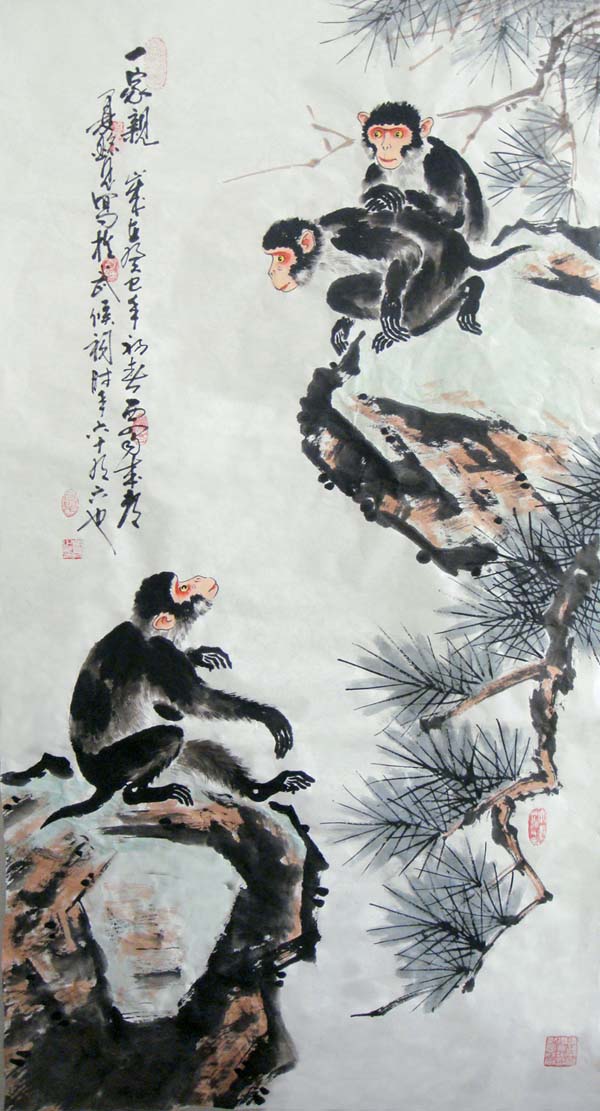 一家親 歲在癸巳年初春西蜀成都
寫於武候祠时年六十有六也